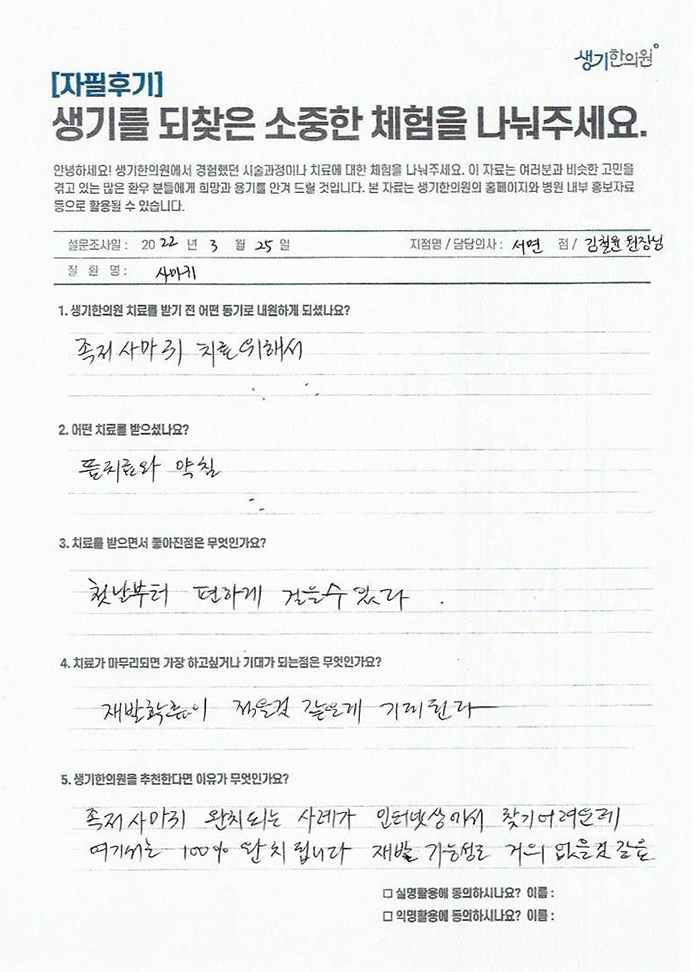 생기한의원
[자필후기]
생기를 되찾은 소중한 체험을 나눠주세요.
안녕하세요! 생기한의원에서 경험했던 시술과정이나 치료에 대한 체험을 나눠주세요. 이 자료는 여러분과 비슷한 고민을
겪고 있는 많은 환우 분들에게 희망과 용기를 안겨 드릴 것입니다. 본 자료는 생기한의원의 홈페이지와 병원 내부 홍보자료
등으로 활용될 수 있습니다.
설문조사일 : 2022 년 3 월 25 일 지점명 / 담당의사 : 서면 점 / 김철윤 원장님
질 환 명 : 사마귀
1. 생기한의원 치료를 받기 전 어떤 동기로 내원하게 되셨나요?
족저사마귀 치료 위해서
2. 어떤 치료를 받으셨나요?
뜸치료와 약침
3. 치료를 받으면서 좋아진점은 무엇인가요?
첫날부터 편하게 걸을수있다.
4. 치료가 마무리되면 가장 하고싶거나 기대가 되는점은 무엇인가요?
재발확률이 적을것 같은게 기대된다
5. 생기한의원을 추천한다면 이유가 무엇인가요?
족저사마귀 완치되는 사례가 인터넷상에서 찾기어려운데
여기서는 100% 완치됩니다 재발 가능성도 거의 없을것같음
□ 실명활용에 동의하시나요? 이름 :
□ 익명활용에 동의하시나요? 이름 :